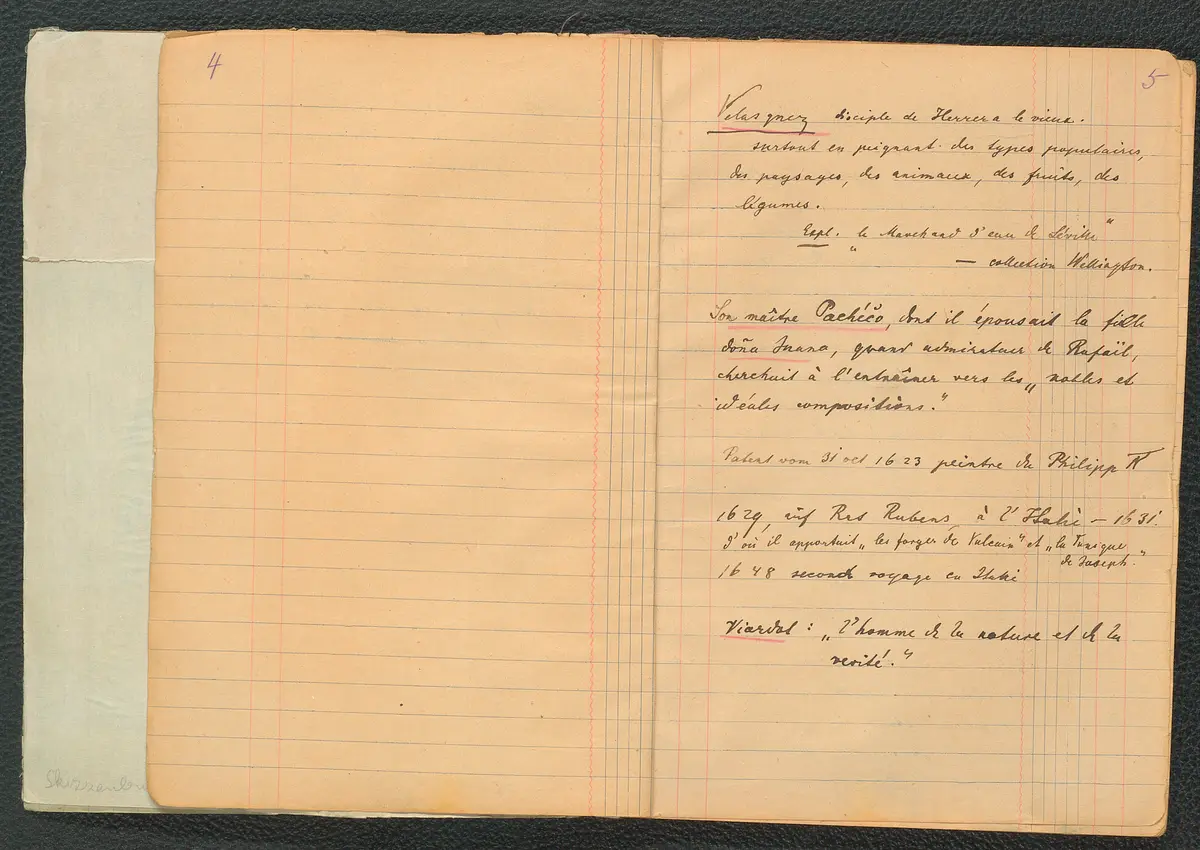 4
5
Velasquez disciple de Herrera le vieux.
surtout en peignant des types populaires,
des paysages, des animaux, des fruits, des
légumes.
Expl. „le Marchand d'eau de Séville“
— collection Wellington.
Son maître Pachéco, dont il épousait la fille
doña Juana, grand admirateur de Rafaïl,
cherchait à l'entraîner vers les „nobles et
idéales compositions.“
Patent vom 31 oct 1623 peintre de Philipp IV
1629, auf Rat Rubens, à l'Italie – 1631.
d'où il apportait „les forges de Vulcain“ et „la Tunique
de Joseph.“
1648 second voyage en Italie
Viardot: „l'homme de la nature et de la
verité.“
Skizzenbu